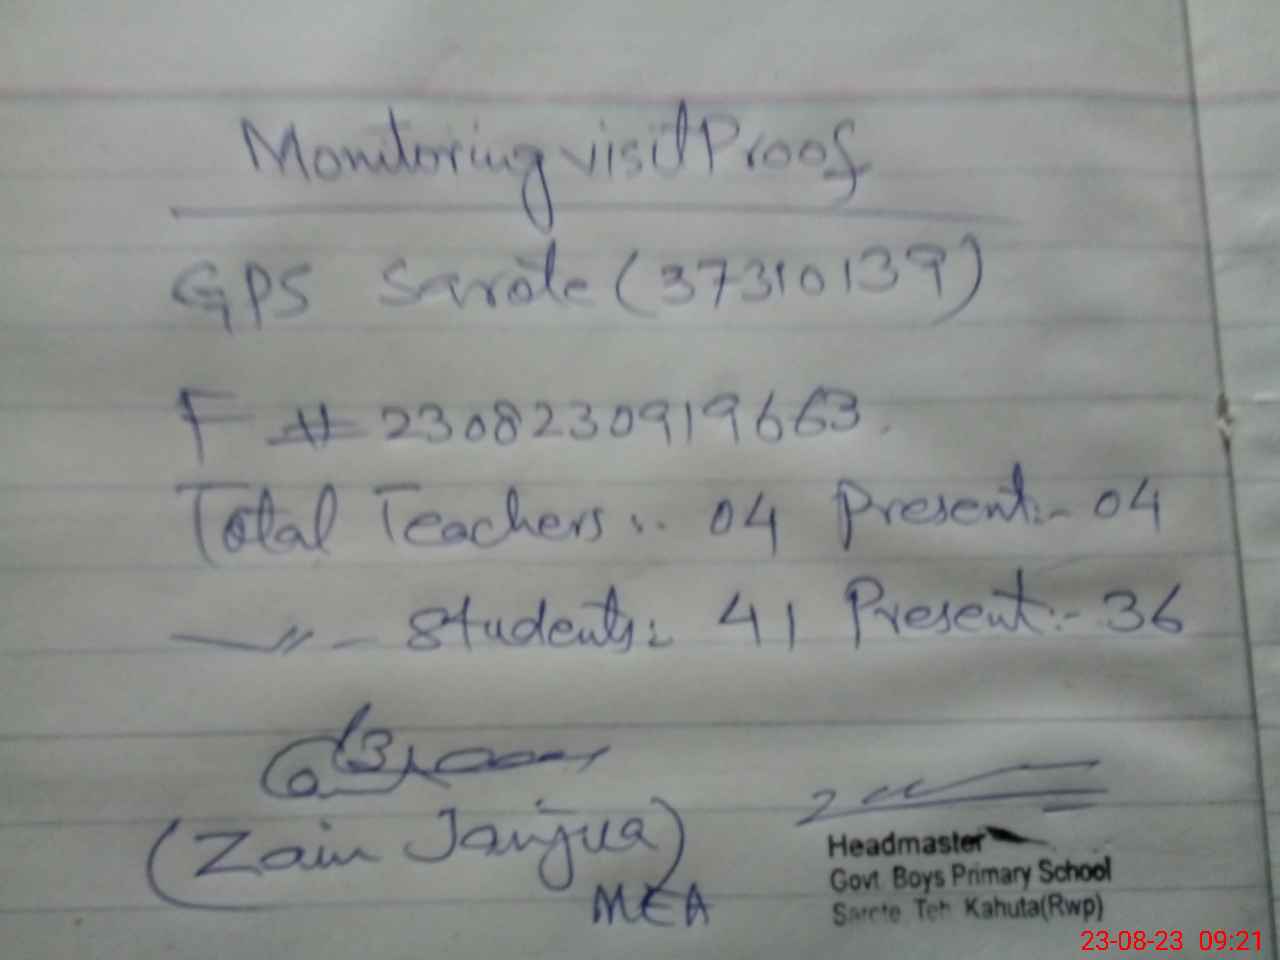 Monitoring visit Proof
GPS Sarote (37310139)
F # 2308230919663.
Total Teachers:. 04 Present:- 04
—〃- Students: 41 Present:- 36
(Zain Janjua)
MEA
Headmaster
Govt Boys Primary School
Sarote Teh Kahuta(Rwp)
23-08-23 09:21